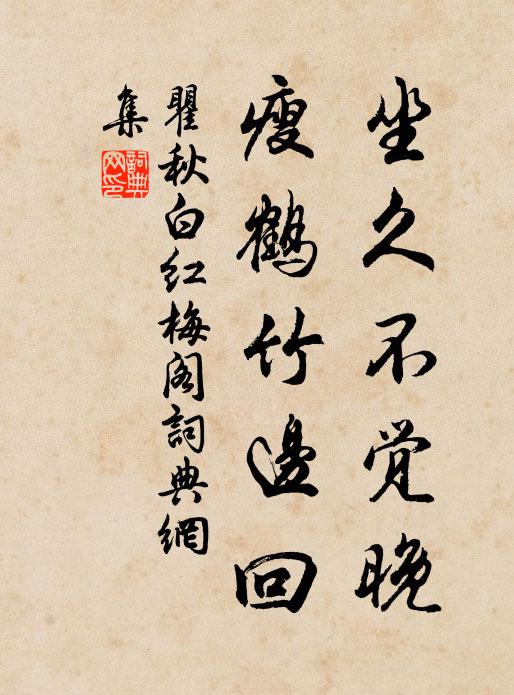 坐久不觉晚
瘦鹤竹邊回
瞿秋白红梅阁詞典網
集
詞典网印